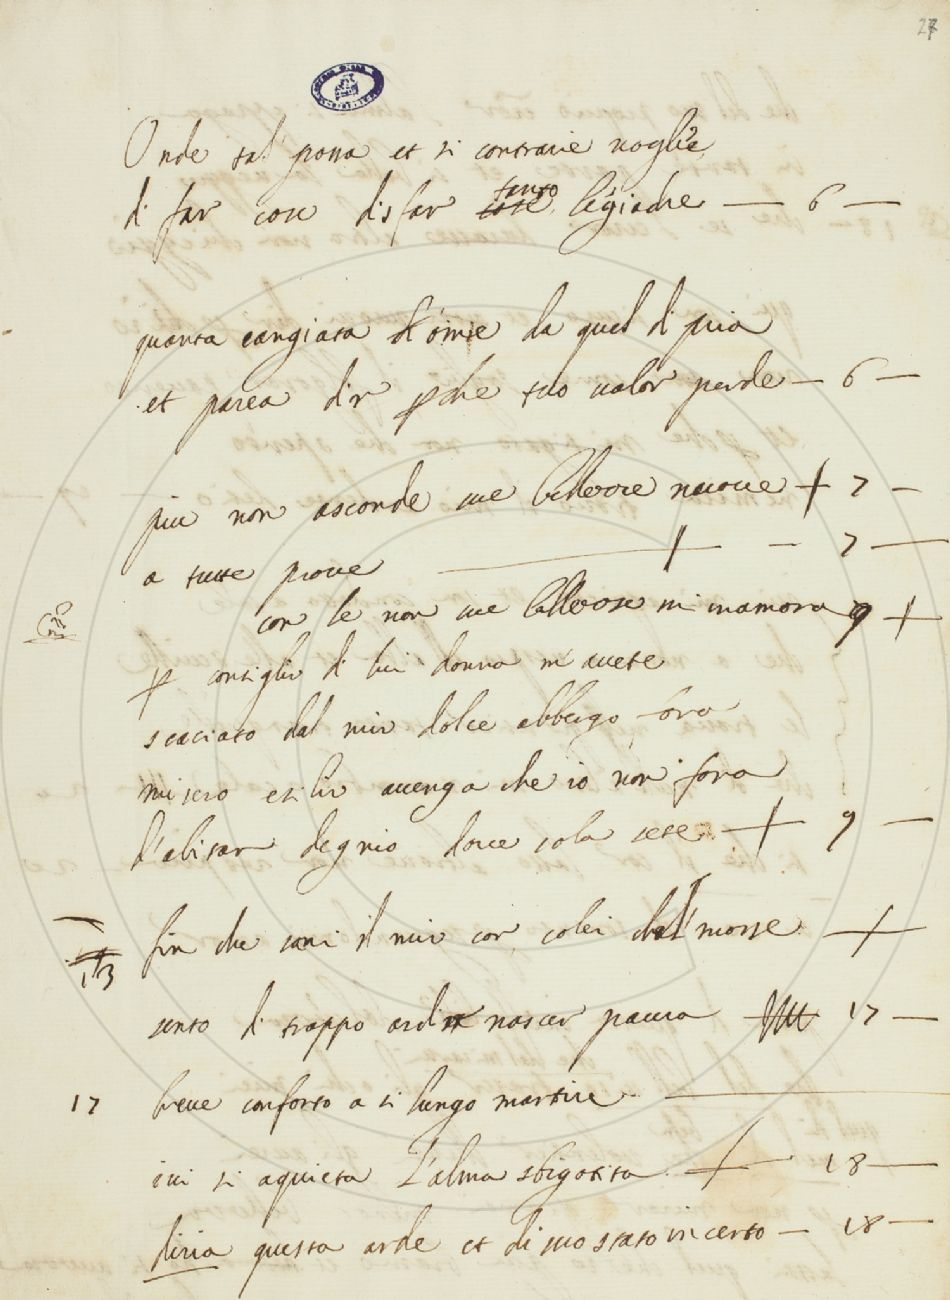 27
Onde tal possa et si contrarie voglie
di far cose disfar tanto legiadre — 6 —
quanta cangiata oime da quel di pria
et parea dir pche tuo valor perde — 6 —
piu non asconde sue bellezze nuove + 7 —
a tutte prove + — 7 —
con le non sue bellezze m inamora 9 +
p consiglio di lui donna m'avete
scaciato dal mio dolce albergo fora
misero esilio avenga che io non fora
d'abitar degnio dove sola sete + 9 —
fin che sani il mio cor colei ch'l morse +
13
sento di troppo ardir nascer paura 17 —
17 breve conforto a si lungo martire
ivi si aquieta l'alma sbigotita + 18 —
diria questa arde et di suo stato incerto — 18 —